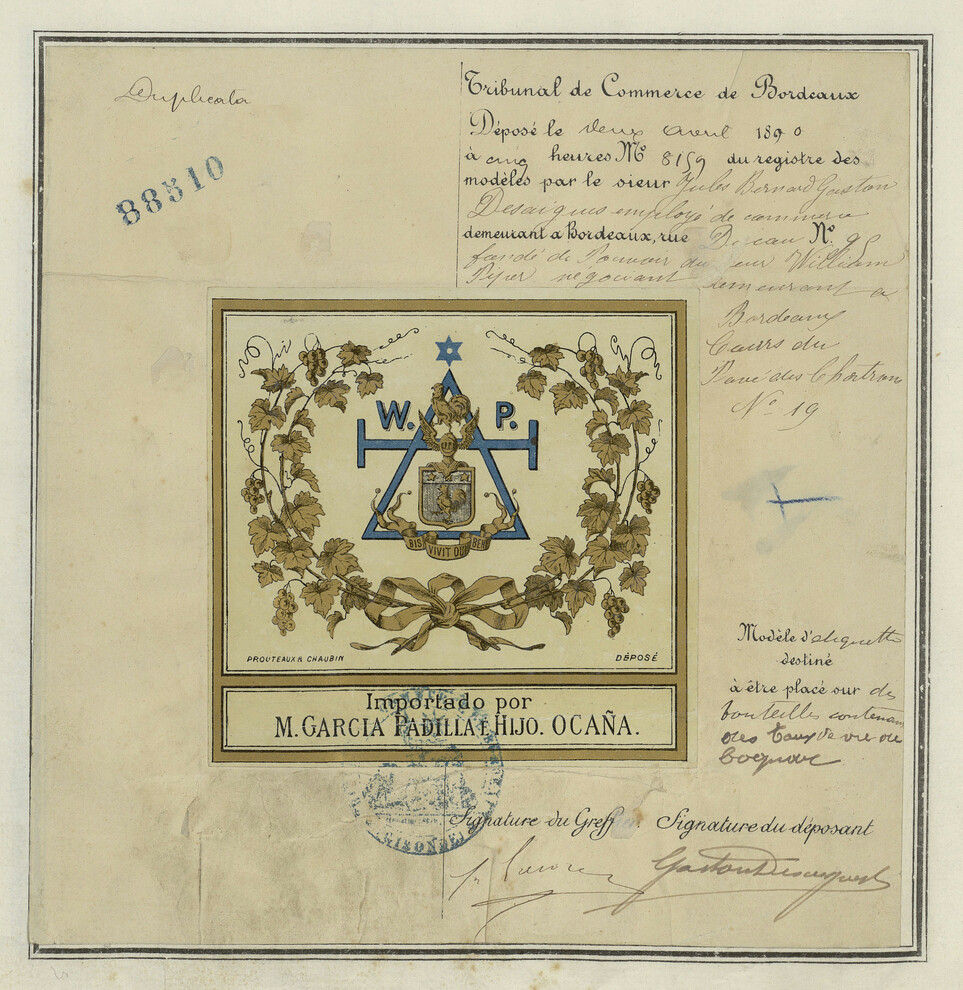 Duplicata
88510
Tribunal de Commerce de Bordeaux
Déposé le deux Avril 1890
à cinq heures Nº 8159 du registre des
modèles par le sieur Jules Bernard Gaston
Desaigues employé de commerce
demeurant à Bordeaux, rue Nº 9
fondé de Pouvoir du sieur William
Piper négociant demeurant a
Bordeaux
Cours du
Pavé des Chartrons
Nº 19
W. P.
BIS VIVIT QUI BENE
PROUTEAUX & CHAUBIN
DÉPOSÉ
Importado por
M. GARCIA PADILLA E HIJO. OCAÑA.
Modèle d'etiquette
destiné
à être placé sur des
bouteilles contenant
des Eaux de vie de
Cognac
Signature du Greffier. Signature du déposant